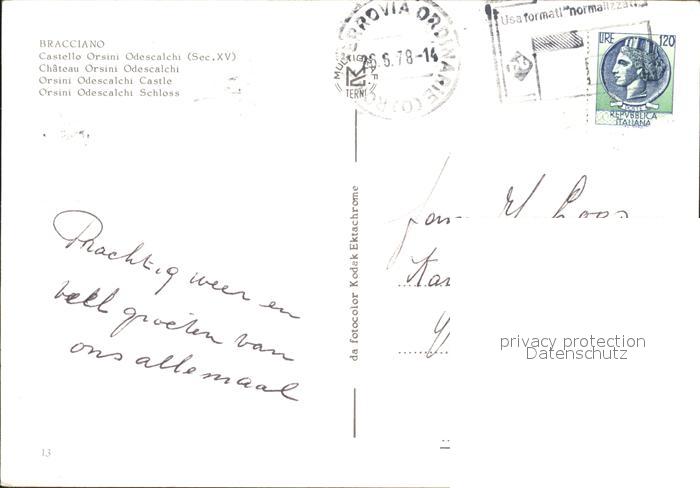 BRACCIANO
Castello Orsini Odescalchi (Sec.XV)
Château Orsini Odescalchi
Orsini Odescalchi Castle
Orsini Odescalchi Schloss
FERROVIA ORDINARIE
6.6.78-14
TERNI
Usa formati "normalizzati
LIRE 120
POSTE
REPVBBLICA
ITALIANA
Prachtig weer en
veel groeten van
ons allemaal
da fotocolor Kodak Ektachrome
Fam
Kar
privacy protection
Datenschutz
13